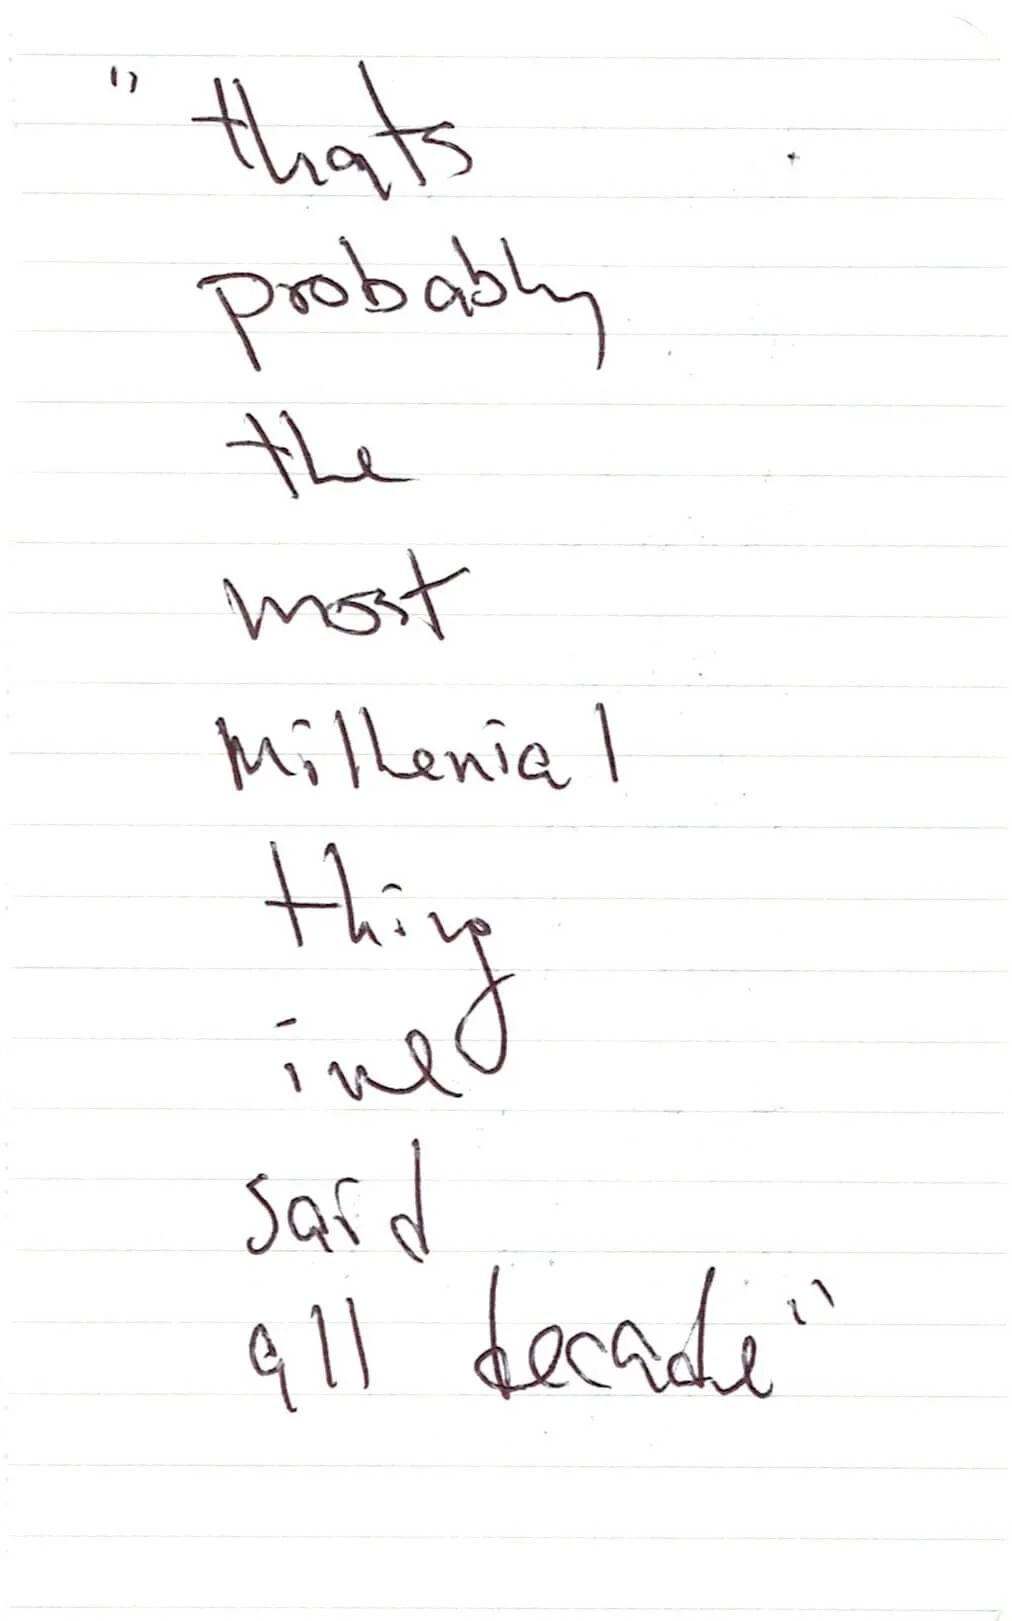 "thats
probably
the
most
Millenial
thing
ive
said
all decade"